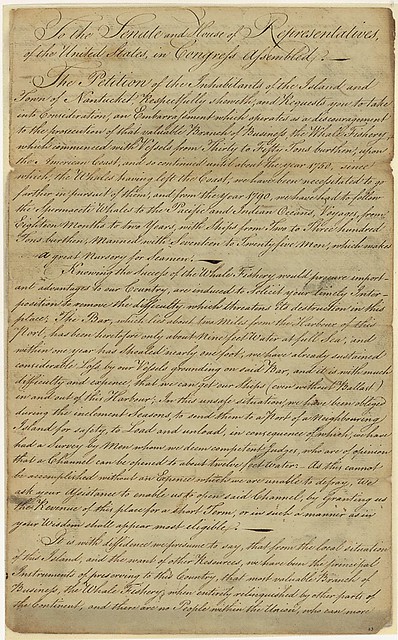 To the Senate and House of Representatives,
of the United States, in Congress Assembled;
The Petition of the Inhabitants of the Island and
Town of Nantucket Respectfully sheweth, and Requests you to take
into Consideration, an Embarrassment which operates as a discouragement
to the prosecution of that valuable Branch of Business, the Whale Fishery,
which commenced with Vessels from Thirty to Fifty Tons burthen, upon
the American Coast, and so continued untill about the year 1750, since
which, the Whales having left the Coast, we have been necessitated to go
further in pursuit of them, and from the year 1790, we have had to follow
the Spermaceti Whales to the Pacific and Indian Oceans, Voyages, from
Eighteen Months to two Years, with Ships from Two to Three hundred
Tons burthen, Manned with Seventeen to Twentyfive Men, which makes
a great Nursery for Seamen.
Knowing the success of the Whale Fishery would procure import-
ant advantages to our Country, are induced to Solicit your timely Inter-
position to remove the difficulty which threatens its destruction in this
place; The Bar, which lies about two Miles from the Harbour of this
Port, has been heretofore only about Nine feet Water at full Sea, and
within one year has Shoaled nearly one foot; we have already sustained
considerable Loss by our Vessels grounding on said Bar, and it is with much
difficulty and expence, that we can get our Ships (even without Ballast)
in and out of this Harbour; In this unsafe situation, we have been obliged
during the inclement Seasons, to send them to a Port of a Neighbouring
Island for safety, to Load and unload, in consequence of which, we have
had a Survey by Men whom we deem competent Judges, who are of opinion
that a Channel can be opened to about twelve feet Water - As this cannot
be accomplished without an Expence which we are unable to defray, We
ask your Assistance to enable us to open said Channel, by Granting us
the Revenue of this place for a short Term, or in such a manner as in
your Wisdom shall appear most eligible;
It is with diffidence we presume to say, that from the local situation
of this Island, and the want of other Resources, we have been the principal
Instruments of preserving to this Country, that most valuable Branch of
Business, the Whale Fishery, when entirely relinquished by other parts of
the Continent, and there are no People within the Union, who can more